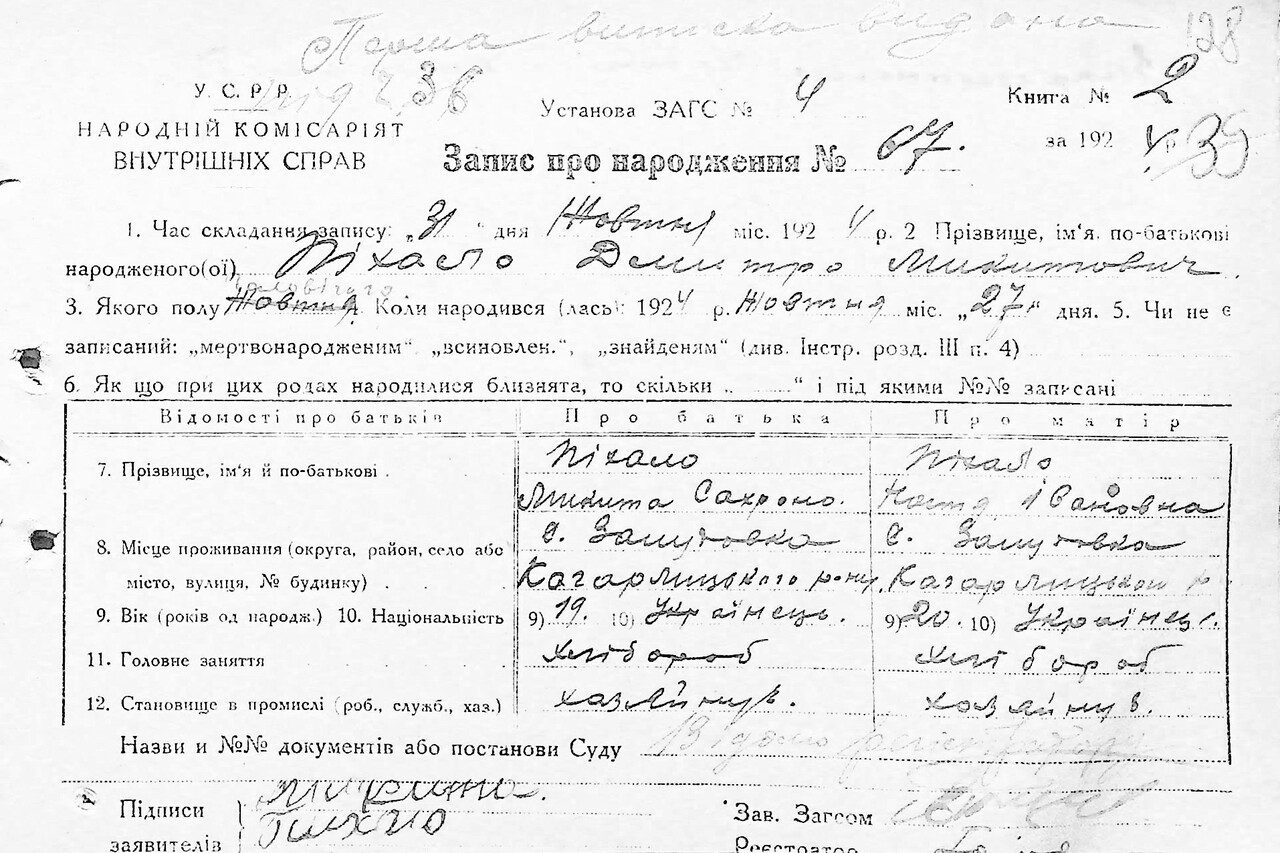 Перша виписка видана 128
У. С. Р. Р. 36
Установа ЗАГС № 4 Книга № 2
НАРОДНІЙ КОМІСАРІЯТ
ВНУТРІШНІХ СПРАВ
Запис про народження № 67. за 1924 р. 35
1. Час складання запису: „31" дня Жовтня міс. 1924 р. 2 Прізвище, ім'я. по-батькові
народженого(ої) Піхало Дмитро Микитович.
чоловічого
3. Якого полу Жовтня. Коли народився (лась): 1924 р. Жовтня міс. „27" дня. 5. Чи не є
записаний: „мертвонародженим" „всиноблен.", „знайденям" (див. Інстр. розд. III п. 4)
6. Як що при цих родах народилися близнята, то скільки „ " і під якими №№ записані
Відомості про батьків Про батька Про матір
7. Прізвище, ім'я й по-батькові . Піхало Піхало
Микита Сахроно. Івановна
8. Місце проживання (округа, район, село або С. С.
місто, вулиця, № будинку) . . Кагарлицького рону. Кагарлицького р
9. Вік (років од народж.) 10. Національність 9) 19. 10) Українець. 9) 20. 10) Українец.
11. Головне заняття хлібороб хлібороб
12. Становище в промислі (роб., служб., хаз.) хазяйнув. хозяйнув.
Назви и №№ документів або постанови Суду Відомо регістратору
Підписи
заявителів
Зав. Загсом
Реєстратор